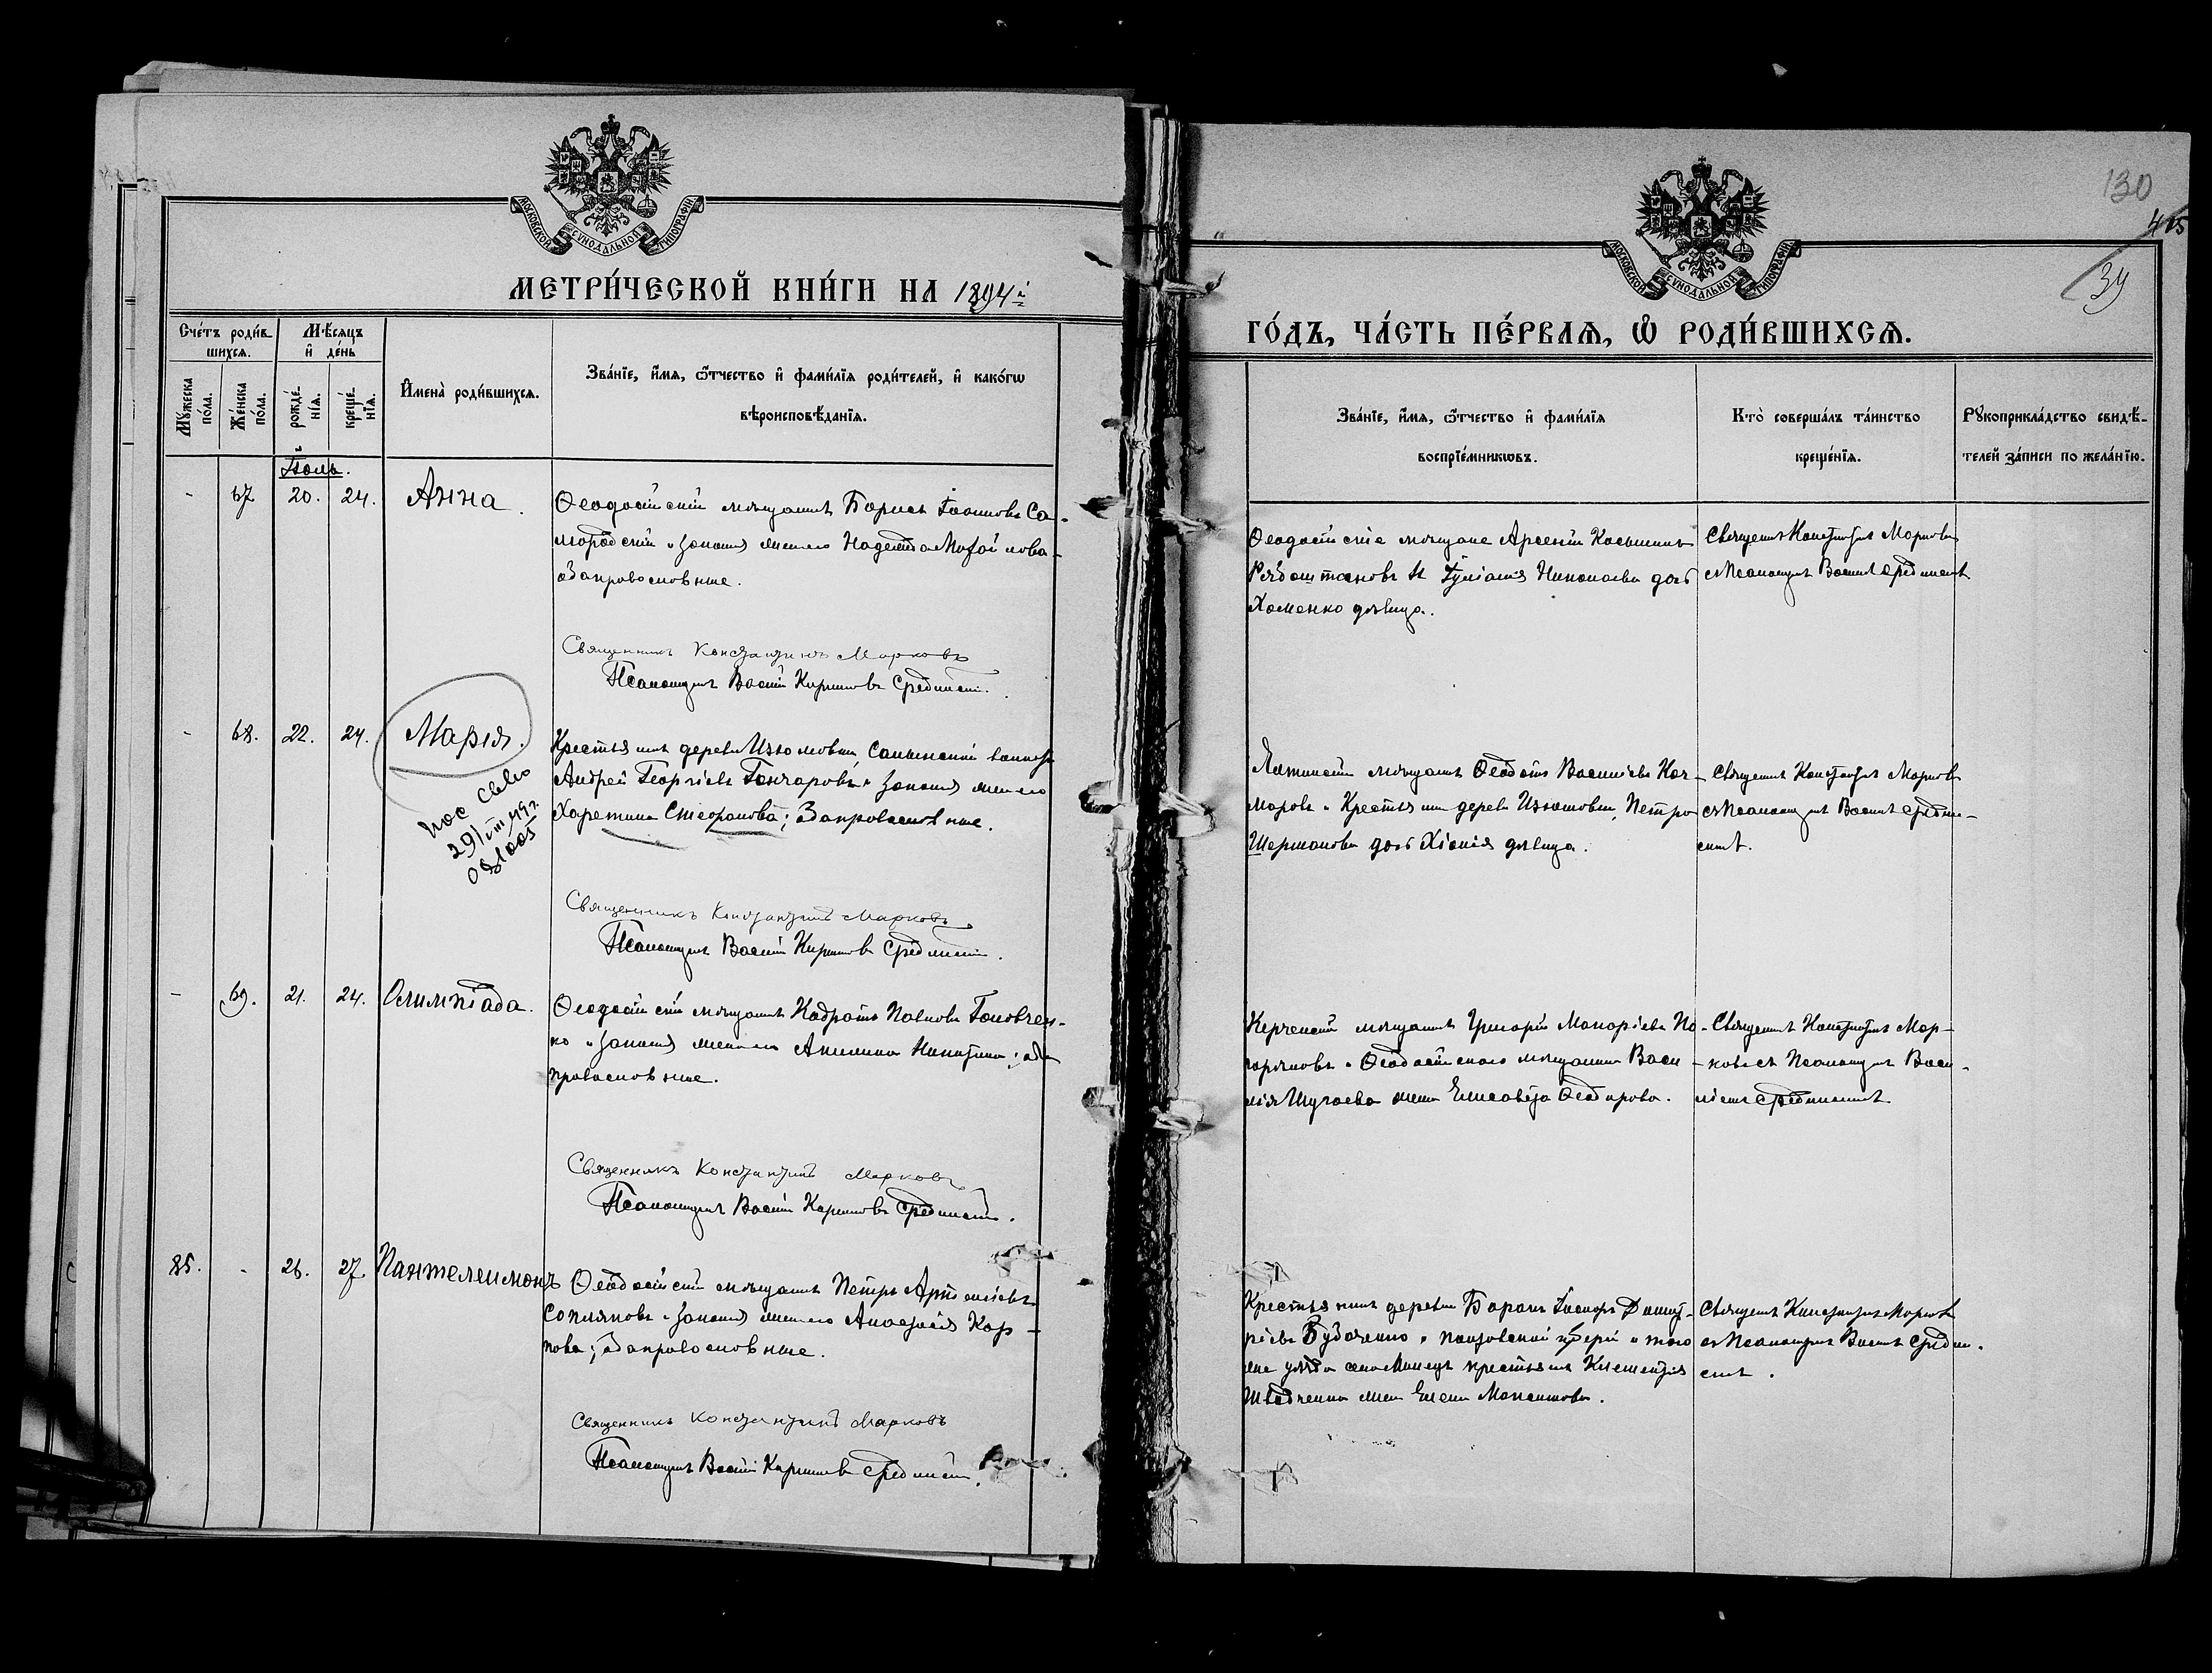 МОСКОВСКОЙ СѴНОДАЛЬНОЙ ТИПОГРАФІИ
МЕТРИ́ЧЕСКОЙ КНИ́ГИ НА 1894й
Сче́тъ роди́в-
шихсѧ.
Мѣ́сѧцъ
и҆ де́нь
Мꙋ́жеска по́ла.
Же́нска по́ла.
рожде́-
нїѧ.
креще́-
нїѧ.
И҆мена̀ роди́вшихсѧ.
Зва́нїе, и҆́мѧ, ѻ҆́тчество и҆ фами́лїѧ роди́телей, и҆ како́гѡ
вѣроисповѣ́данїѧ.
Іюль.
- 67 20. 24. Анна.
Ѳеодосійскій мѣщанинъ Борисъ Іоанновъ Са-
мородскій и законная жена его Надежда
оба православные.
Священникъ Константинъ Марковъ
Псаломщикъ Василій Кирилловъ Срединскій.
- 68. 22. 24. Марія.
Крестьянинъ деревни Изюмовки, Салынской волости
Андрей Георгіевъ Гончаровъ и законная жена его
Харитина Стефанова; оба православные.
29/VIII 49 г.
Священникъ Константинъ Марковъ
Псаломщикъ Василій Кирилловъ Срединскій.
- 69. 21. 24. Олимпіада.
Ѳеодосійскій мѣщанинъ Кодратъ Павловъ Головчен-
ко и законная жена его Акилина Никитина; оба
православные.
Священникъ Константинъ Марковъ
Псаломщикъ Василій Кирилловъ Срединскій.
85. - 26. 27. Пантелеимонъ
Ѳеодосійскій мѣщанинъ Петръ Артеміевъ
Сопляковъ и законная жена его Анастасія Кар-
пова; оба православные.
Священникъ Константинъ Марковъ
Псаломщикъ Василій Кирилловъ Срединскій.
130
415
39
МОСКОВСКОЙ СѴНОДАЛЬНОЙ ТИПОГРАФІИ
ГО́ДЪ, ЧА́СТЬ ПЕ́РВАѦ, Ѡ҆ РОДИ́ВШИХСѦ.
Зва́нїе, и҆́мѧ, ѻ҆́тчество и҆ фами́лїѧ
воспрїе́мникѡвъ.
Кто̀ соверша́лъ та́инство
креще́нїѧ.
Рꙋкоприкла́дство свидѣ́-
телей за́писи по жела́нїю.
Ѳеодосійскіе мѣщане Арсеній Косьминъ
и Іуліанія Николаева дочь
Хоменко дѣвица.
Священникъ Константинъ Марковъ
съ Псаломщикомъ Василіемъ Срединскимъ
мѣщанинъ Ѳеодотъ Василіевъ Кач-
маровъ и Крестьянина деревни Изюмовки, Петра
Шершанова дочь Хіонія дѣвица.
Священникъ Константинъ Марковъ
съ Псаломщикомъ Василіемъ Средин-
скимъ.
Керченскій мѣщанинъ Григорій Макаріевъ По-
и Ѳеодосійскаго мѣщанина Васи-
лія Шугаева жена Елисавета Ѳеодорова.
Священникъ Константинъ Мар-
ковъ съ Псаломщикомъ Васи-
ліемъ Срединскимъ
Крестьянинъ деревни Баракъ Исидоръ Димит-
ріевъ Будаченко и Полтавской губерніи и того
же уѣзда села крестьянина Климентія
жена Елена Максимова.
Священникъ Константинъ Марковъ
съ Псаломщикомъ Василіемъ Средин-
скимъ.